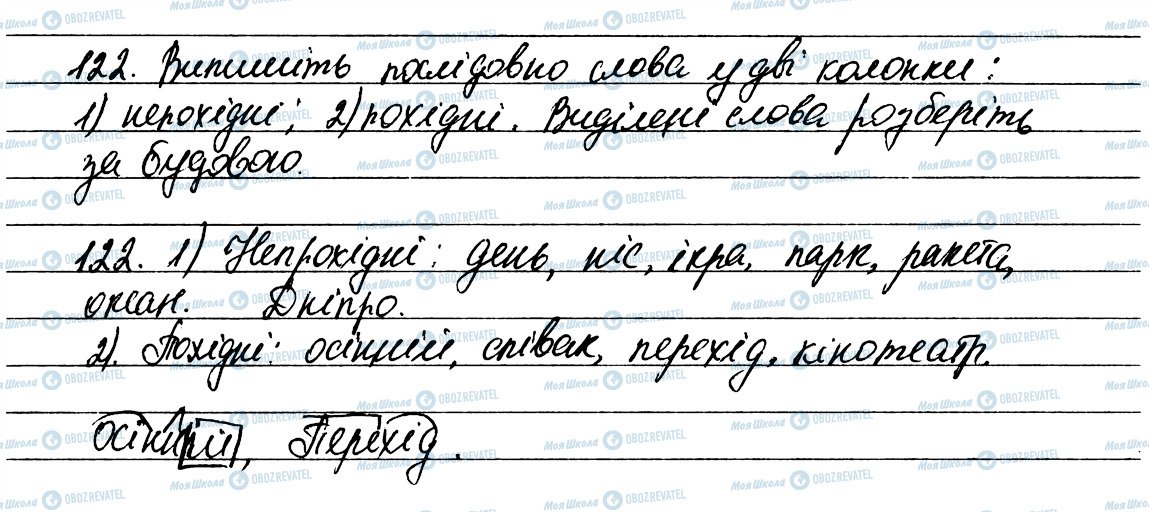 122. Випишіть послідовно слова у дві колонки:
1) непохідні; 2) похідні. Виділені слова розберіть
за будовою.
122. 1) Непрохідні: день, ніс, ікра, парк, ракета,
океан. Дніпро.
2). Похідні: осінній, співак, перехід, кінотеатр.
осінній, Перехід.